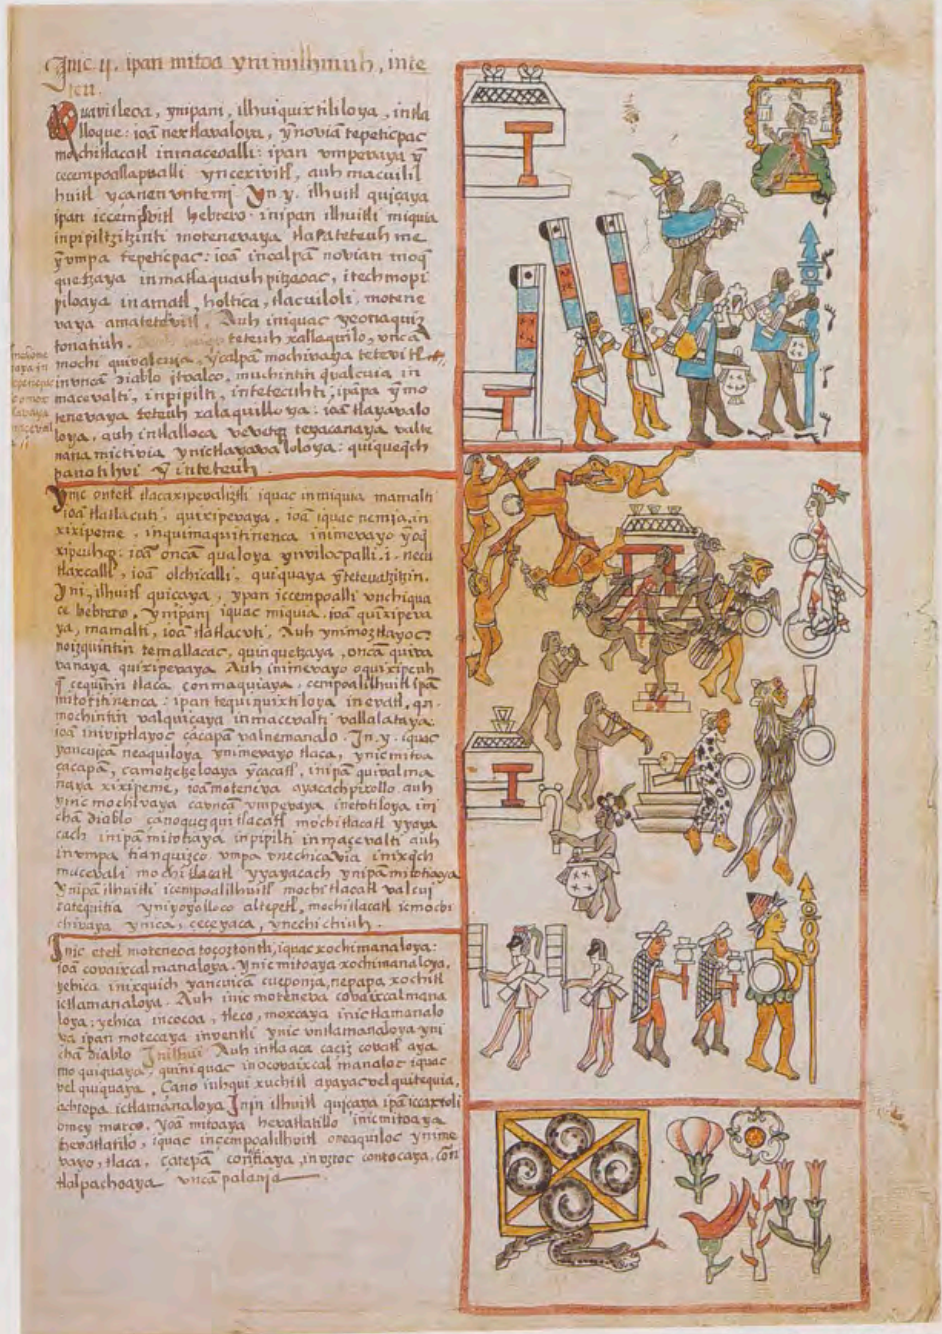 Jnic ij. ipan mitoa yni ilhuiuh, inte
teu.
Quavitleoa, ynipanj, ilhuiquixtililoya, intla
lloque: ioā nextlavaloya, ỹ novia tepeticpac
mochitlacatl inmaceoalli: ipan vmpevaya ỹ
cecempoallapoalli yncexivitl, auh macuilil
huitl ycanen ontemj Yn. y. ilhuitl quiçaya
ipan iccemilvitl hebrero. inipan ilhuitli miquia
inpipiltzitzinti motenevaya tlacateteuh me
ỹ vmpa tepeticpac: ioā incalpā novian moq̄
quetzaya inmatlaquauhpitzaoac, itechmopi
piloaya inamatl, holtica, tlacuiloli, motene
vaya amatetevitl. Auh iniquac yeonaquiz
tonatiuh. teteuh xallaquilo, vncā
mochi quivalcuia, ycalpā mochivaya tetevitl
invncā diablo itvalco, muchintin q̄valcuia in
macevalti, inpipilti, intetecuhti, ipāpa ỹ mo
tenevaya teteuh xalaquilloya: ioā tlayavalo
loya, auh intlalloca vevetq̄ teyacanaya
nana mictivia ynictlayavaloloya: quiquequech
panotihui ỹ inteteuh.
Ynic ontetl tlacaxipevaliztli iquac inmiquia mamalti
ioā tlatlacuti, quixipevaya, ioā iquac nemia, in
xixipeme. inquimaquitinenca inimevayo ỹ oq̄
xipeuhq̄: ioā oncā qualoya ynvilocpalli. i. necu
tlaxcalli, ioā olchicalli, quiquaya
Ynj, ilhuitl quiçaya, ypan iccempoalli vnchiqua
ce hebrero, ynipanj iquac miquia. ioā quixipeva
ya, mamalti, ioā tlatlacuti, Auh ynimoztlayoc:
noizquintin temallacac, quinquetzaya, oncā quiva
vanaya quixipevaya Auh inimevayo oquixipeuh
q̄ cequintin tlaca conmaquiaya, cempoalilhuitl ipā
mitotitinenca: ipan tequiquixtiloya inevatl, qn.
mochintin valquiçaya inmacevalti vallalataya:
ioā inivipt​layoc çacapā valnemanalo. Jn. y. iquac
yancuicā neaquiloya ynimevayo tlaca, ynic mitoa
çacapā, camotzetzeloaya yçacatl, inipā quivalma
naya xixipeme, ioā moteneva ayacachpixollo auh
ynic mochivaya caoncā vmpevaya inetotiloya ini
chā diablo çanoquezqui tlacatl mochitlacatl yyaya
cach inipā mitotiaya inpipilti inmacevalti auh
invmpa tianquizco vmpa vnechicavia inixq̄ch
macevali mochi tlacatl yyayacach ynipā mitotiaya
ynipā ilhuitli icempoalilhuitl mochi tlacatl valcui
catequitia yniyoyolloco altepetl, mochitlacatl icmochi
chivaya ynica, ceceyaca, ynechichiuh.
Jnic etetl moteneoa toçoztontli, iquac xochimanaloya:
ioā covaixcal manaloya. ynic mitoaya xochimanaloya,
yehica inixquich yancuica cueponja, nepapā xochitl
ictlamanaloya. Auh inic moteneva covaixcalmana
loya: yehica incocoa, tleco, moxcaya inictlamanalo
ya ipan motecaya inventli ynic vntlamanaloya yni
chā diablo Auh intla aca caciz covatl aya
mo quiquaya, quiniquac inocovaixcal manaloc iquac
vel quiquaya. Çano iuhqui xuchitl ayayac vel quitequia,
achtopa ictlamanaloya Jnin ilhuitl quiçaya ipā iccaxtoli
omey março. yoā mitoaya hevatlatillo inic mitoaya
hevatlatilo, iquac incempoalilhuitl oneaquiloc ynime
vayo, tlaca, çatepā contiaya, inoztoc contocaya, con
tlalpachoaya vncā palanja